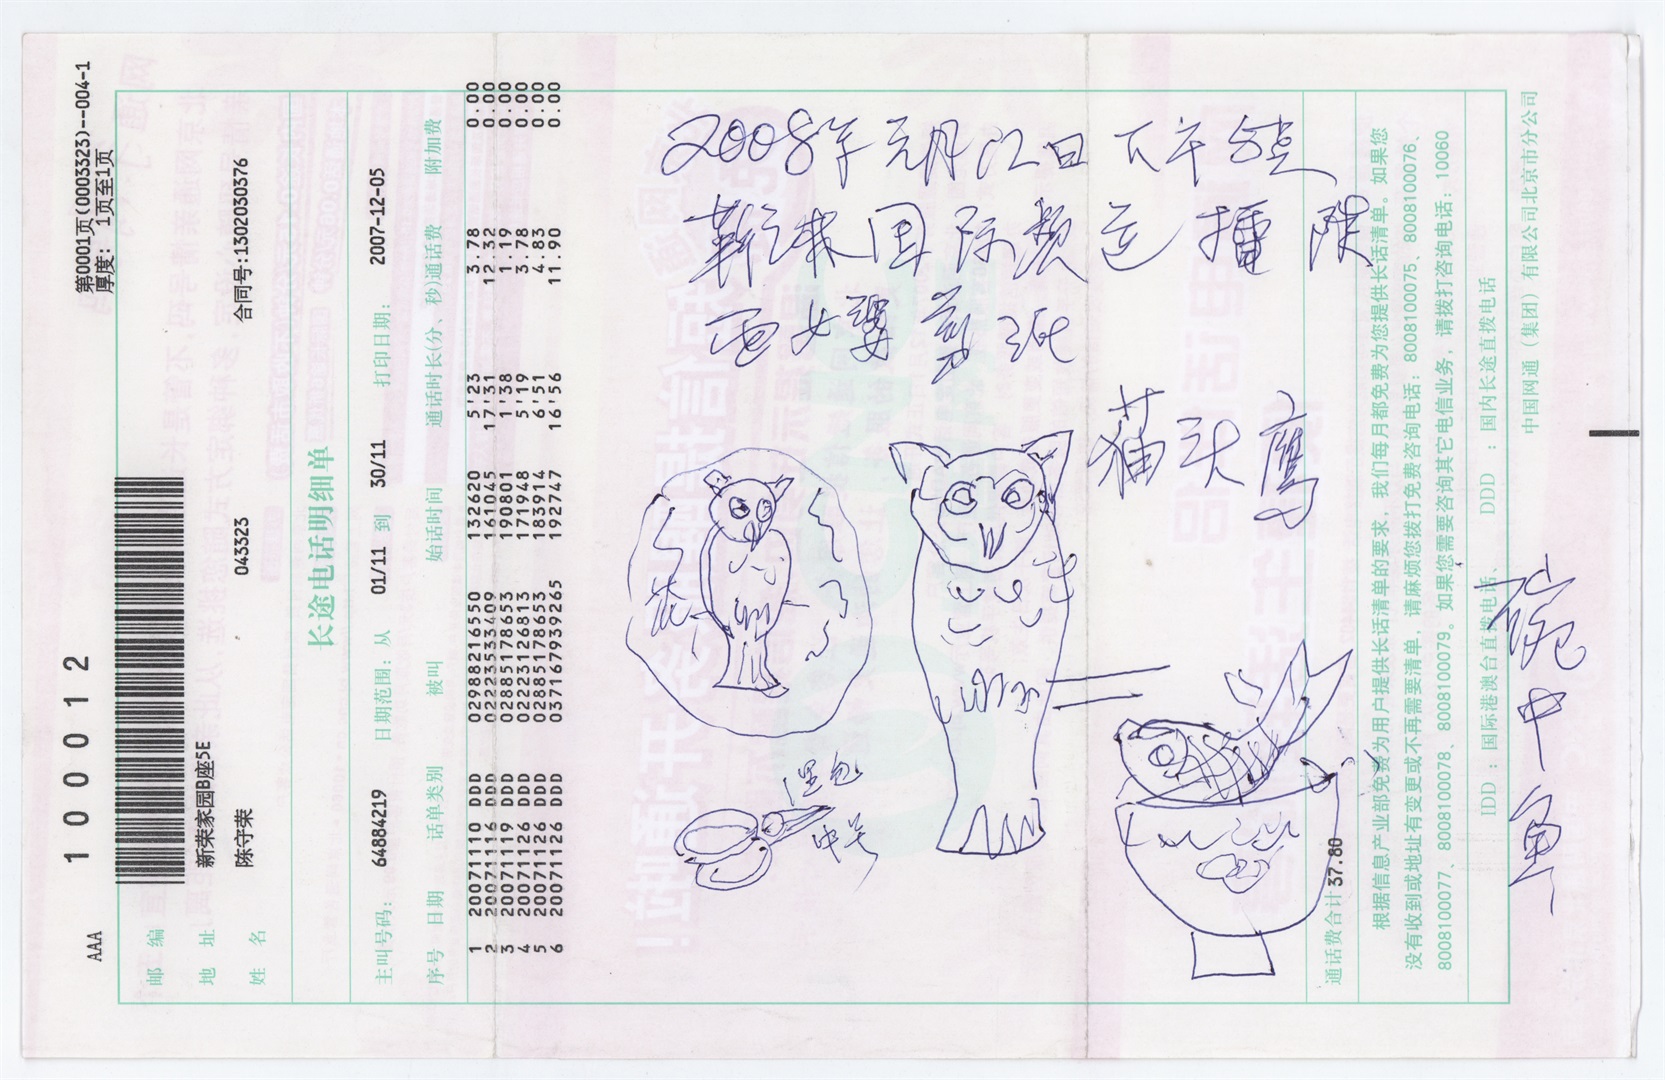 第0001页(0003323)--004-1
厚度: 1页至1页
100012
AAA
邮 编
地 址 新荣家园B座5E
姓 名 陈守荣 043323 合同号:1302030376
长途电话明细单
主叫号码: 64884219 日期范围: 从 01/11 到 30/11 打印日期: 2007-12-05
序号 日期 话单类别 被叫 始话时间 通话时长(分、秒) 通话费 附加费
1 20071110 DDD 02988216550 132620 5'23 3.78 0.00
2 20071116 DDD 02223533409 161045 17'31 12.32 0.00
3 20071119 DDD 02885178653 190801 1'38 1.19 0.00
4 20071126 DDD 02223126813 171948 5'19 3.78 0.00
5 20071126 DDD 02885178653 183914 6'51 4.83 0.00
6 20071126 DDD 037167939265 192747 16'56 11.90 0.00
通话费合计 37.80
根据信息产业部免费为用户提供长话清单的要求，我们每月都免费为您提供长话清单。如果您
没有收到或地址有变更或不再需要清单，请麻烦您拨打免费咨询电话：8008100075、8008100076、
8008100077、8008100078、8008100079。如果您需要咨询其它电信业务，请拨打咨询电话：10060
IDD ：国际港澳台直拨电话、 DDD ：国内长途直拨电话
中国网通（集团）有限公司北京市分公司
2008年元月12日下午5点
国际
剪纸
猫头鹰